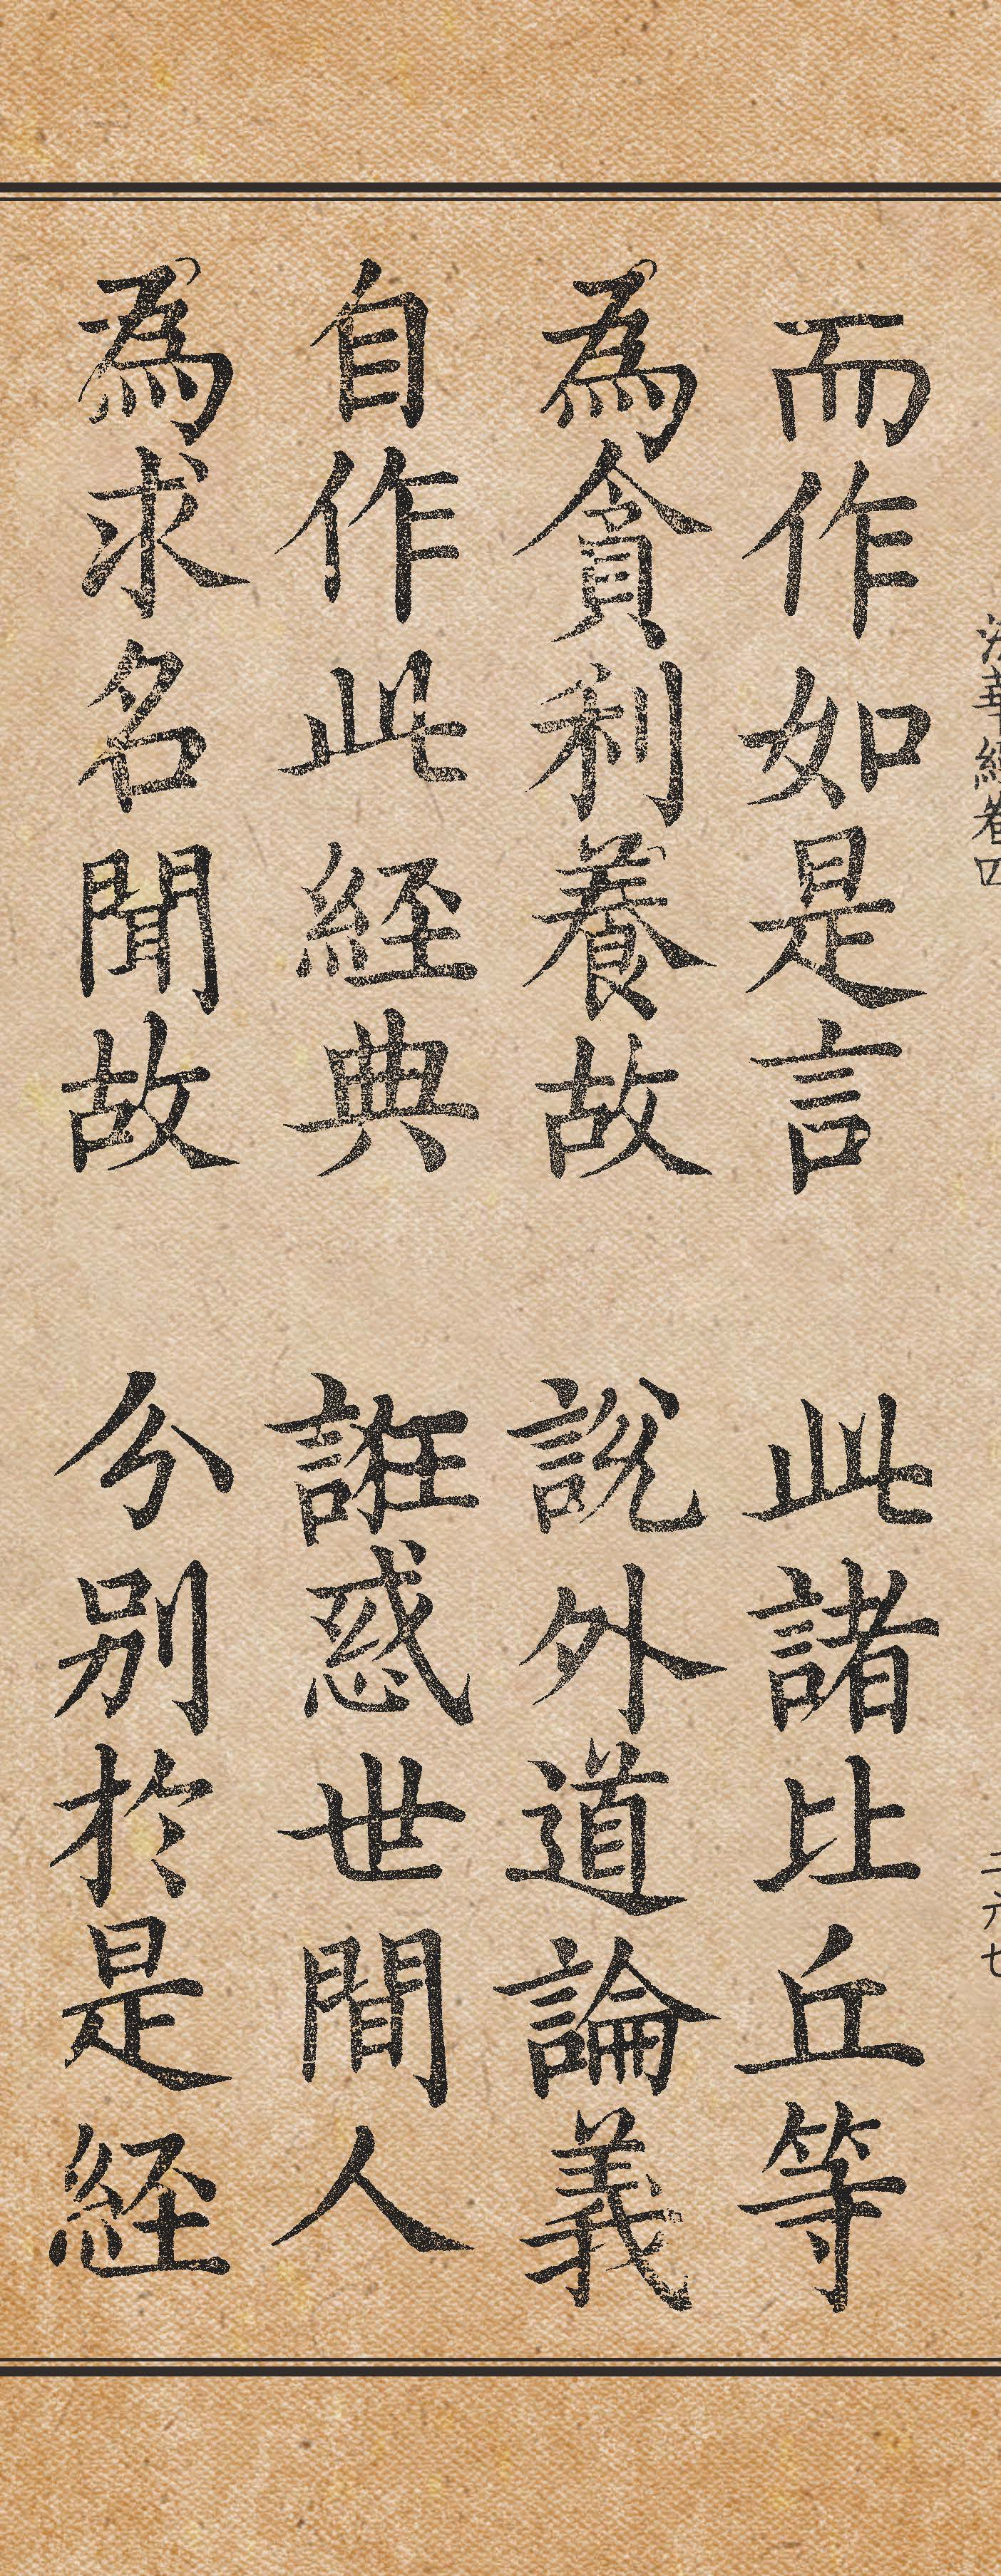 法華經卷四 二六七
而作如是言 此諸比丘等
為貪利養故 說外道論義
自作此経典 誑惑世間人
為求名聞故 分別於是経